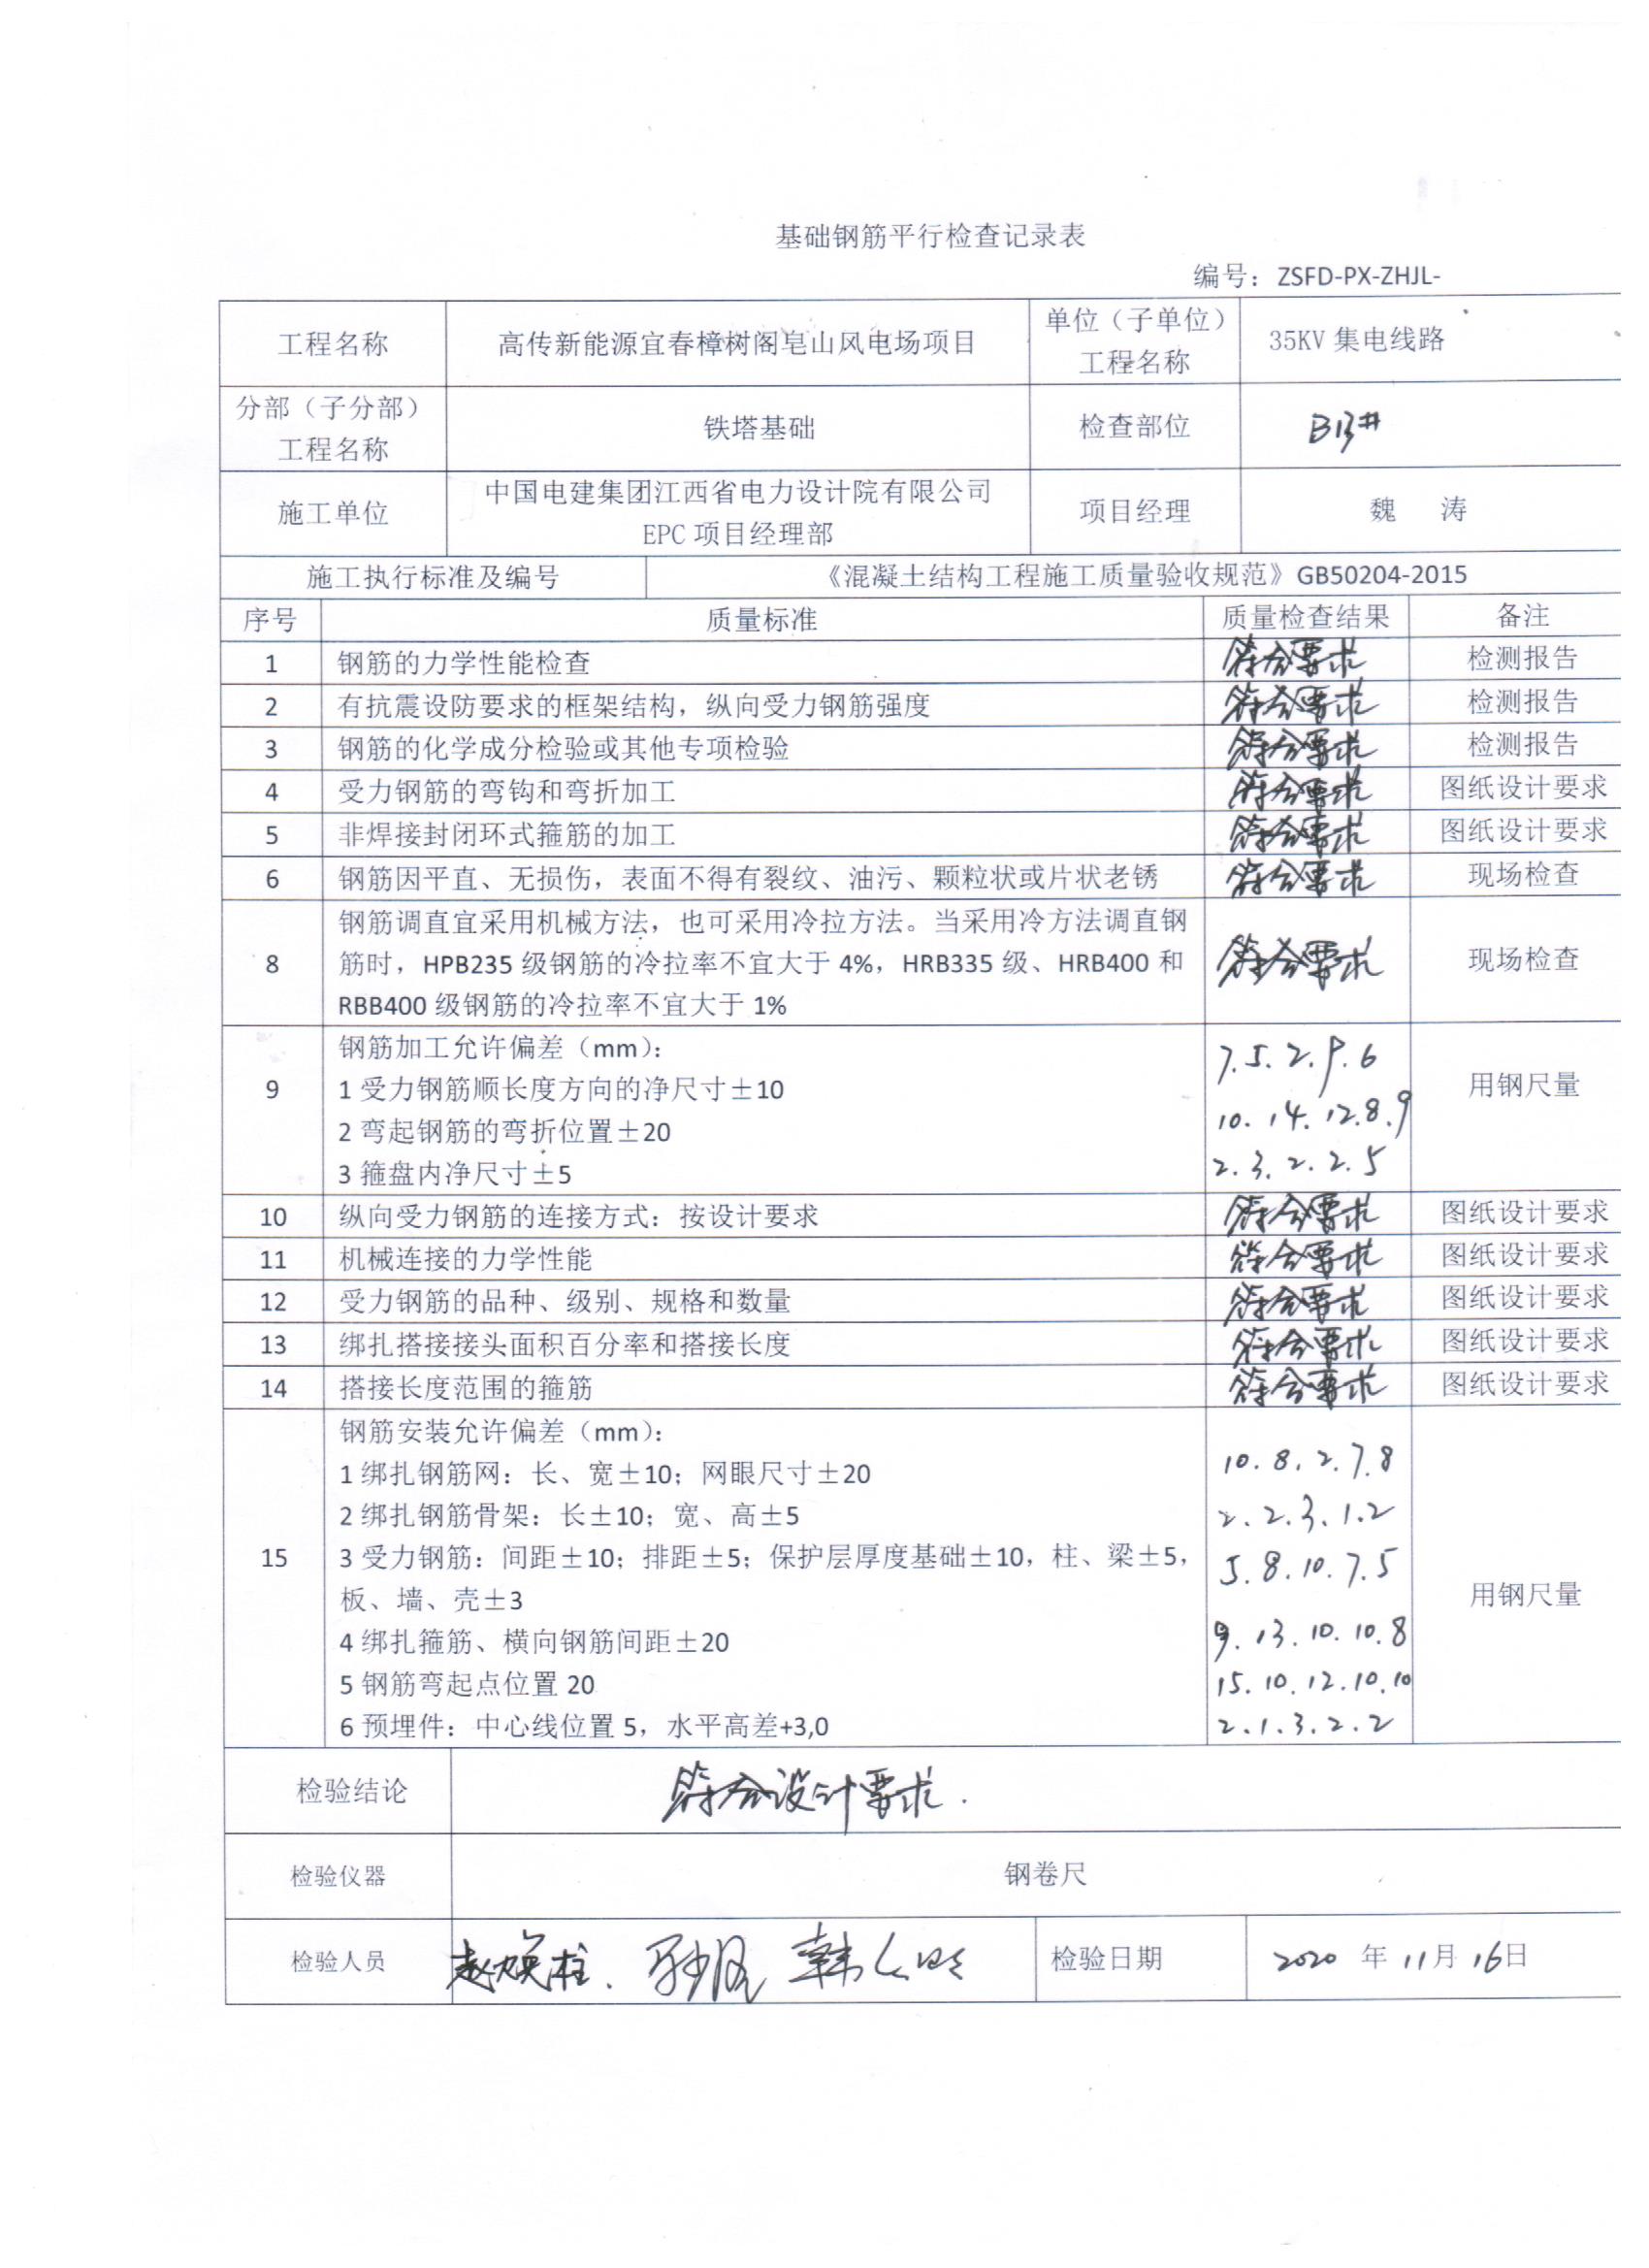 基础钢筋平行检查记录表
编号：ZSFD-PX-ZHJL-
工程名称 高传新能源宜春樟树阁皂山风电场项目 单位（子单位）工程名称 35KV 集电线路
分部（子分部）工程名称 铁塔基础 检查部位 B13#
施工单位 中国电建集团江西省电力设计院有限公司 EPC 项目经理部 项目经理 魏 涛
施工执行标准及编号 《混凝土结构工程施工质量验收规范》GB50204-2015
序号 质量标准 质量检查结果 备注
1 钢筋的力学性能检查 符合要求 检测报告
2 有抗震设防要求的框架结构，纵向受力钢筋强度 符合要求 检测报告
3 钢筋的化学成分检验或其他专项检验 符合要求 检测报告
4 受力钢筋的弯钩和弯折加工 符合要求 图纸设计要求
5 非焊接封闭环式箍筋的加工 符合要求 图纸设计要求
6 钢筋因平直、无损伤，表面不得有裂纹、油污、颗粒状或片状老锈 符合要求 现场检查
钢筋调直宜采用机械方法，也可采用冷拉方法。当采用冷方法调直钢
8 筋时，HPB235 级钢筋的冷拉率不宜大于 4%，HRB335 级、HRB400 和 符合要求 现场检查
RBB400 级钢筋的冷拉率不宜大于 1%
钢筋加工允许偏差（mm）： 7.5.2.9.6
9 1 受力钢筋顺长度方向的净尺寸±10 用钢尺量
2 弯起钢筋的弯折位置±20 10.14.12.8.9
3 箍盘内净尺寸±5 2.3.2.2.5
10 纵向受力钢筋的连接方式：按设计要求 符合要求 图纸设计要求
11 机械连接的力学性能 符合要求 图纸设计要求
12 受力钢筋的品种、级别、规格和数量 符合要求 图纸设计要求
13 绑扎搭接接头面积百分率和搭接长度 符合要求 图纸设计要求
14 搭接长度范围的箍筋 符合要求 图纸设计要求
钢筋安装允许偏差（mm）：
1 绑扎钢筋网：长、宽±10；网眼尺寸±20 10.8.2.7.8
2 绑扎钢筋骨架：长±10；宽、高±5 2.2.3.1.2
15 3 受力钢筋：间距±10；排距±5；保护层厚度基础±10，柱、梁±5， 5.8.10.7.5
板、墙、壳±3 用钢尺量
4 绑扎箍筋、横向钢筋间距±20 9.13.10.10.8
5 钢筋弯起点位置 20 15.10.12.10.10
6 预埋件：中心线位置 5，水平高差+3,0 2.1.3.2.2
检验结论 符合设计要求.
检验仪器 钢卷尺
检验人员 赵焕柱. 检验日期 2020 年 11月 16日